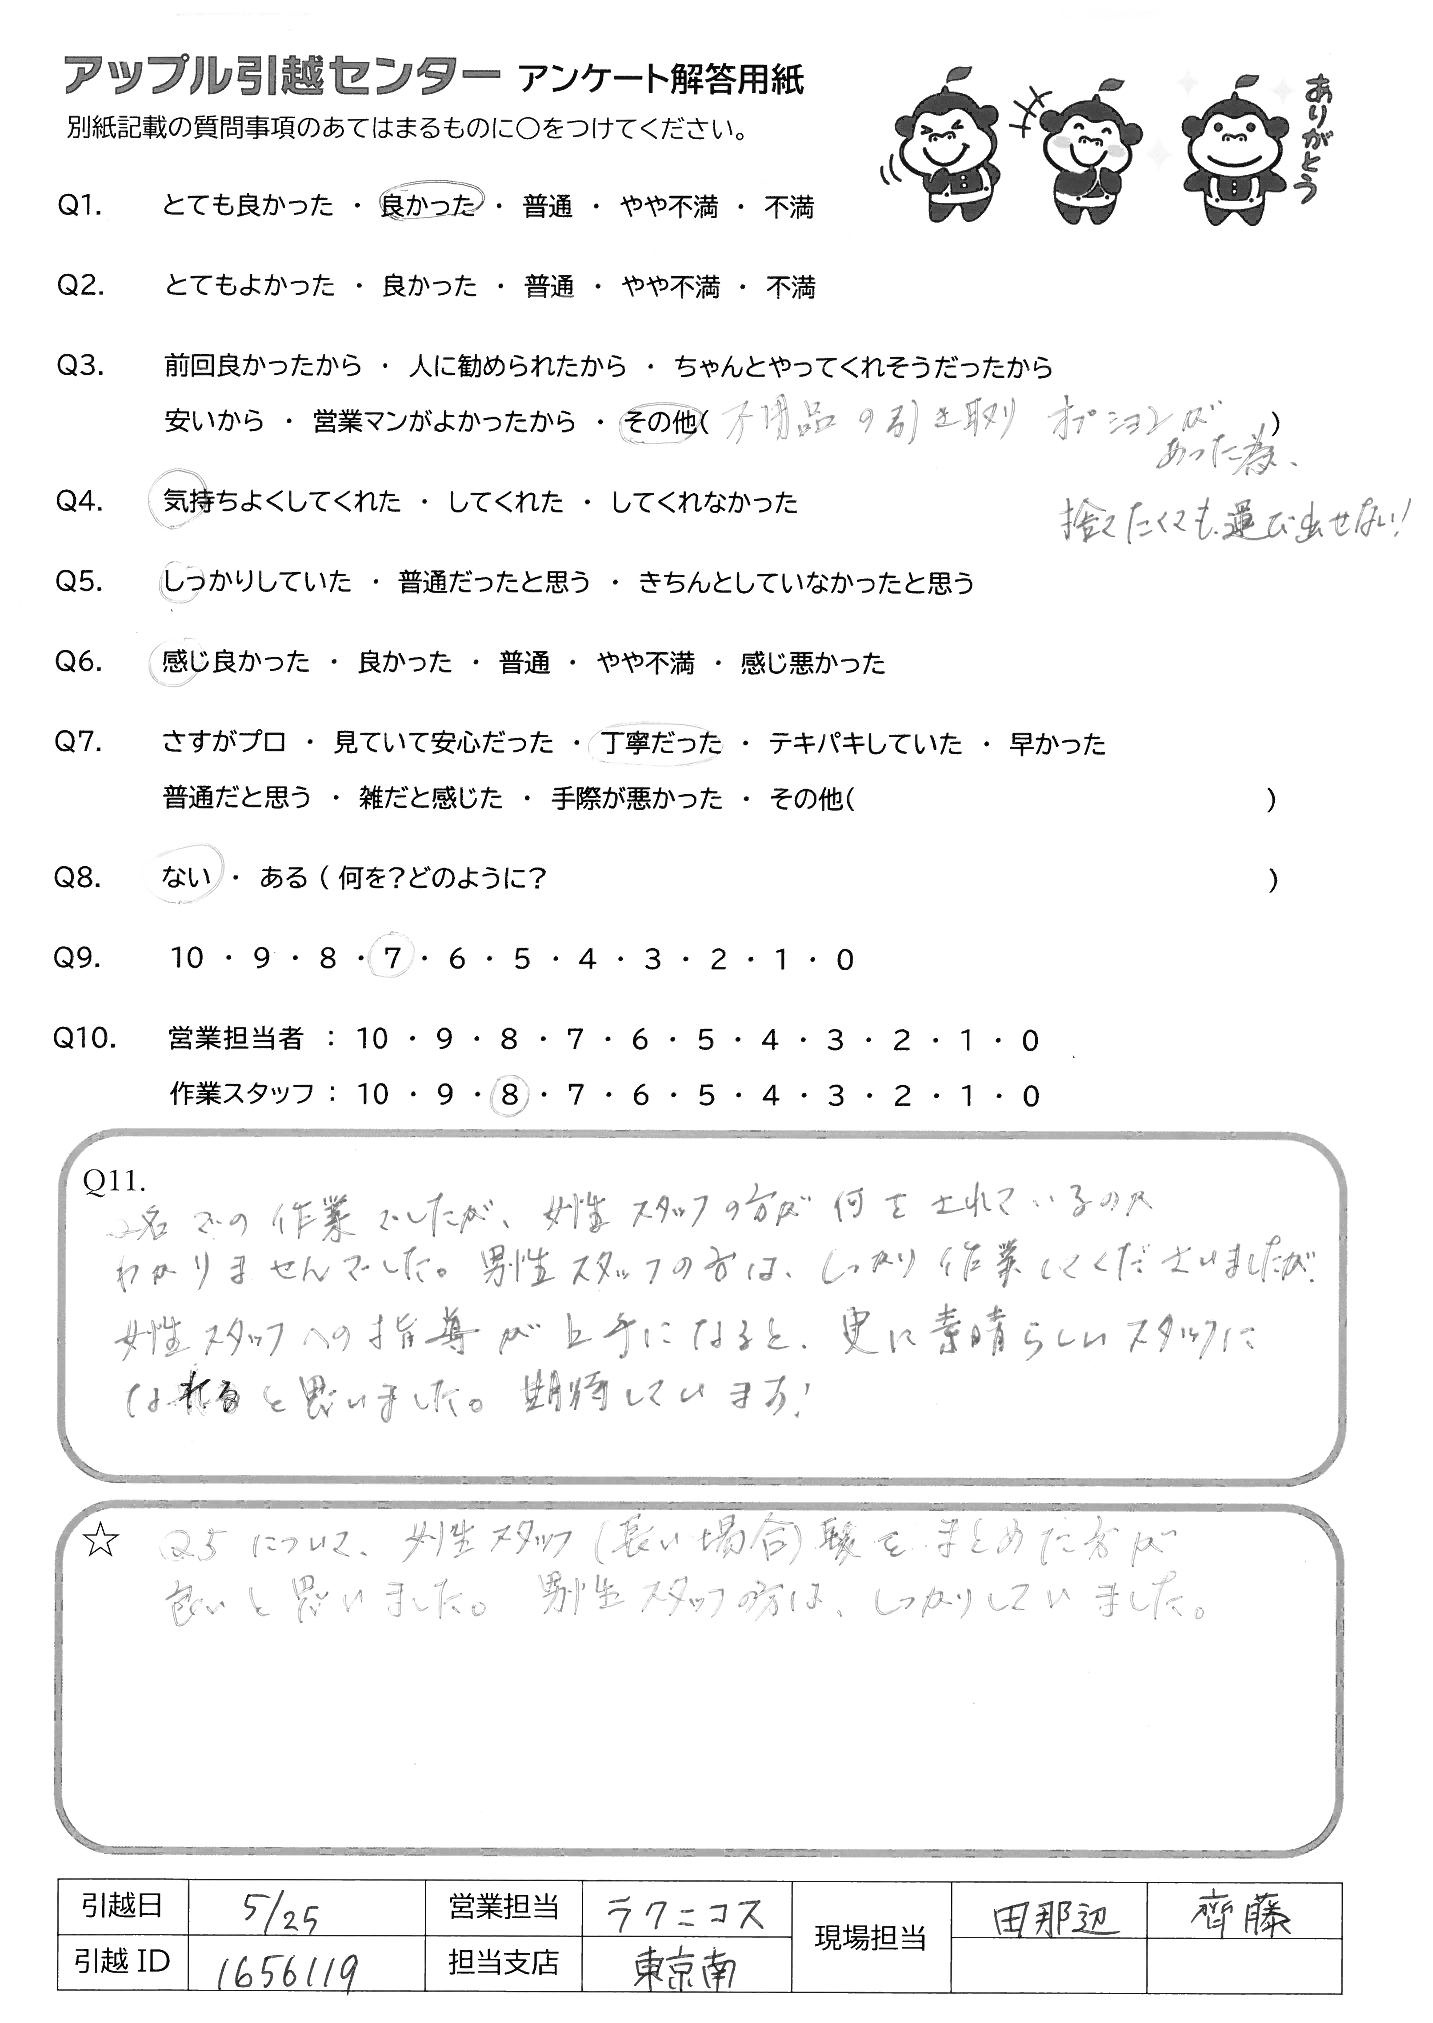 アップル引越センター アンケート解答用紙
別紙記載の質問事項のあてはまるものに○をつけてください。
ありがとう
Q1. とても良かった ・ 良かった ・ 普通 ・ やや不満 ・ 不満
Q2. とてもよかった ・ 良かった ・ 普通 ・ やや不満 ・ 不満
Q3. 前回良かったから ・ 人に勧められたから ・ ちゃんとやってくれそうだったから
安いから ・ 営業マンがよかったから ・ その他( 不用品の引き取り オプションが )
あった為、
Q4. 気持ちよくしてくれた ・ してくれた ・ してくれなかった
捨てたくても運び出せない!
Q5. しっかりしていた ・ 普通だったと思う ・ きちんとしていなかったと思う
Q6. 感じ良かった ・ 良かった ・ 普通 ・ やや不満 ・ 感じ悪かった
Q7. さすがプロ ・ 見ていて安心だった ・ 丁寧だった ・ テキパキしていた ・ 早かった
普通だと思う ・ 雑だと感じた ・ 手際が悪かった ・ その他( )
Q8. ない ・ ある ( 何を?どのように? )
Q9. 10 ・ 9 ・ 8 ・ 7 ・ 6 ・ 5 ・ 4 ・ 3 ・ 2 ・ 1 ・ 0
Q10. 営業担当者 : 10 ・ 9 ・ 8 ・ 7 ・ 6 ・ 5 ・ 4 ・ 3 ・ 2 ・ 1 ・ 0
作業スタッフ : 10 ・ 9 ・ 8 ・ 7 ・ 6 ・ 5 ・ 4 ・ 3 ・ 2 ・ 1 ・ 0
Q11.
2名での作業でしたが、女性スタッフの方が何をされているのか
わかりませんでした。男性スタッフの方は、しっかり作業してくださいましたが、
女性スタッフへの指導が上手になると、更に素晴らしいスタッフに
なれると思いました。期待しています!
☆ Q5について、女性スタッフ(長い場合)髪をまとめた方が
良いと思いました。男性スタッフの方は、しっかりしていました。
引越日 5/25 営業担当 ラクニコス 現場担当 田那辺 齊藤
引越ID 1656119 担当支店 東京南